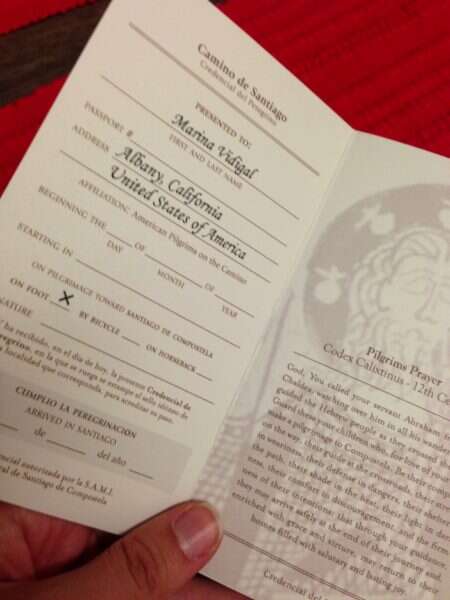 Camino de Santiago
Credencial del Peregrino
PRESENTED TO:
Marina Vidigal
FIRST AND LAST NAME
PASSPORT #
ADDRESS Albany, California
United States of America
AFFILIATION: American Pilgrims on the Camino
BEGINNING THE OF OF
DAY MONTH YEAR
STARTING IN
ON PILGRIMAGE TOWARD SANTIAGO DE COMPOSTELA
ON FOOT X BY BICYCLE ON HORSEBACK
NATURE
ha recibido, en el día de hoy, la presente Credencial de
eregrino, en la que se ruega se estampe el sello
localidad que corresponda, para acreditar su paso.
CUMPLIO LA PEREGRINACION
ARRIVED IN SANTIAGO
de del año
encial autorizada por la S.A.M.I.
ral de Santiago de Compostela
Pilgrims Prayer
Codex Calixtinus - 12th Ce
God, You called your servant Abraham
Chaldea, watching over him in all his wander
guided the Hebrew people as they crossed the
Guard these your children who, for love of your
make a pilgrimage to Compostela. Be their comp
on the way, their guide at the crossroads, their stre
in weariness, their defense in dangers, their shelter
the path, their shade in the heat, their light in dark
ness, their comfort in discouragement, and the firm
ness of their intentions; that through your guidance,
they may arrive safely at the end of their journey and,
enriched with grace and virtue, may return to their
homes filled with salutary and lasting joy.
Credencial del